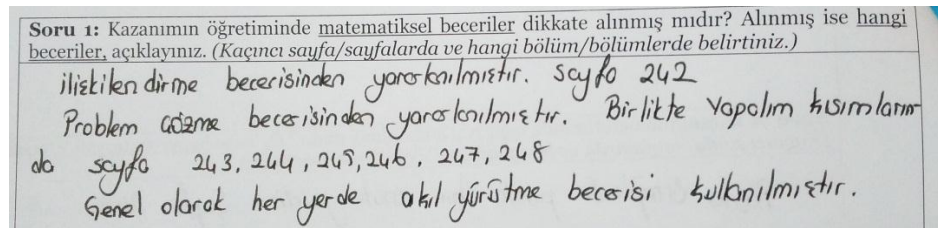 Soru 1: Kazanımın öğretiminde matematiksel beceriler dikkate alınmış mıdır? Alınmış ise hangi
beceriler, açıklayınız. (Kaçıncı sayfa/sayfalarda ve hangi bölüm/bölümlerde belirtiniz.)
ilişkilendirme becerisinden yararlanılmıştır. Sayfa 242
Problem çözme becerisinden yararlanılmıştır. Birlikte Yapalım kısımların
da sayfa 243, 244, 245, 246, 247, 248
Genel olarak her yerde akıl yürütme becerisi kullanılmıştır.